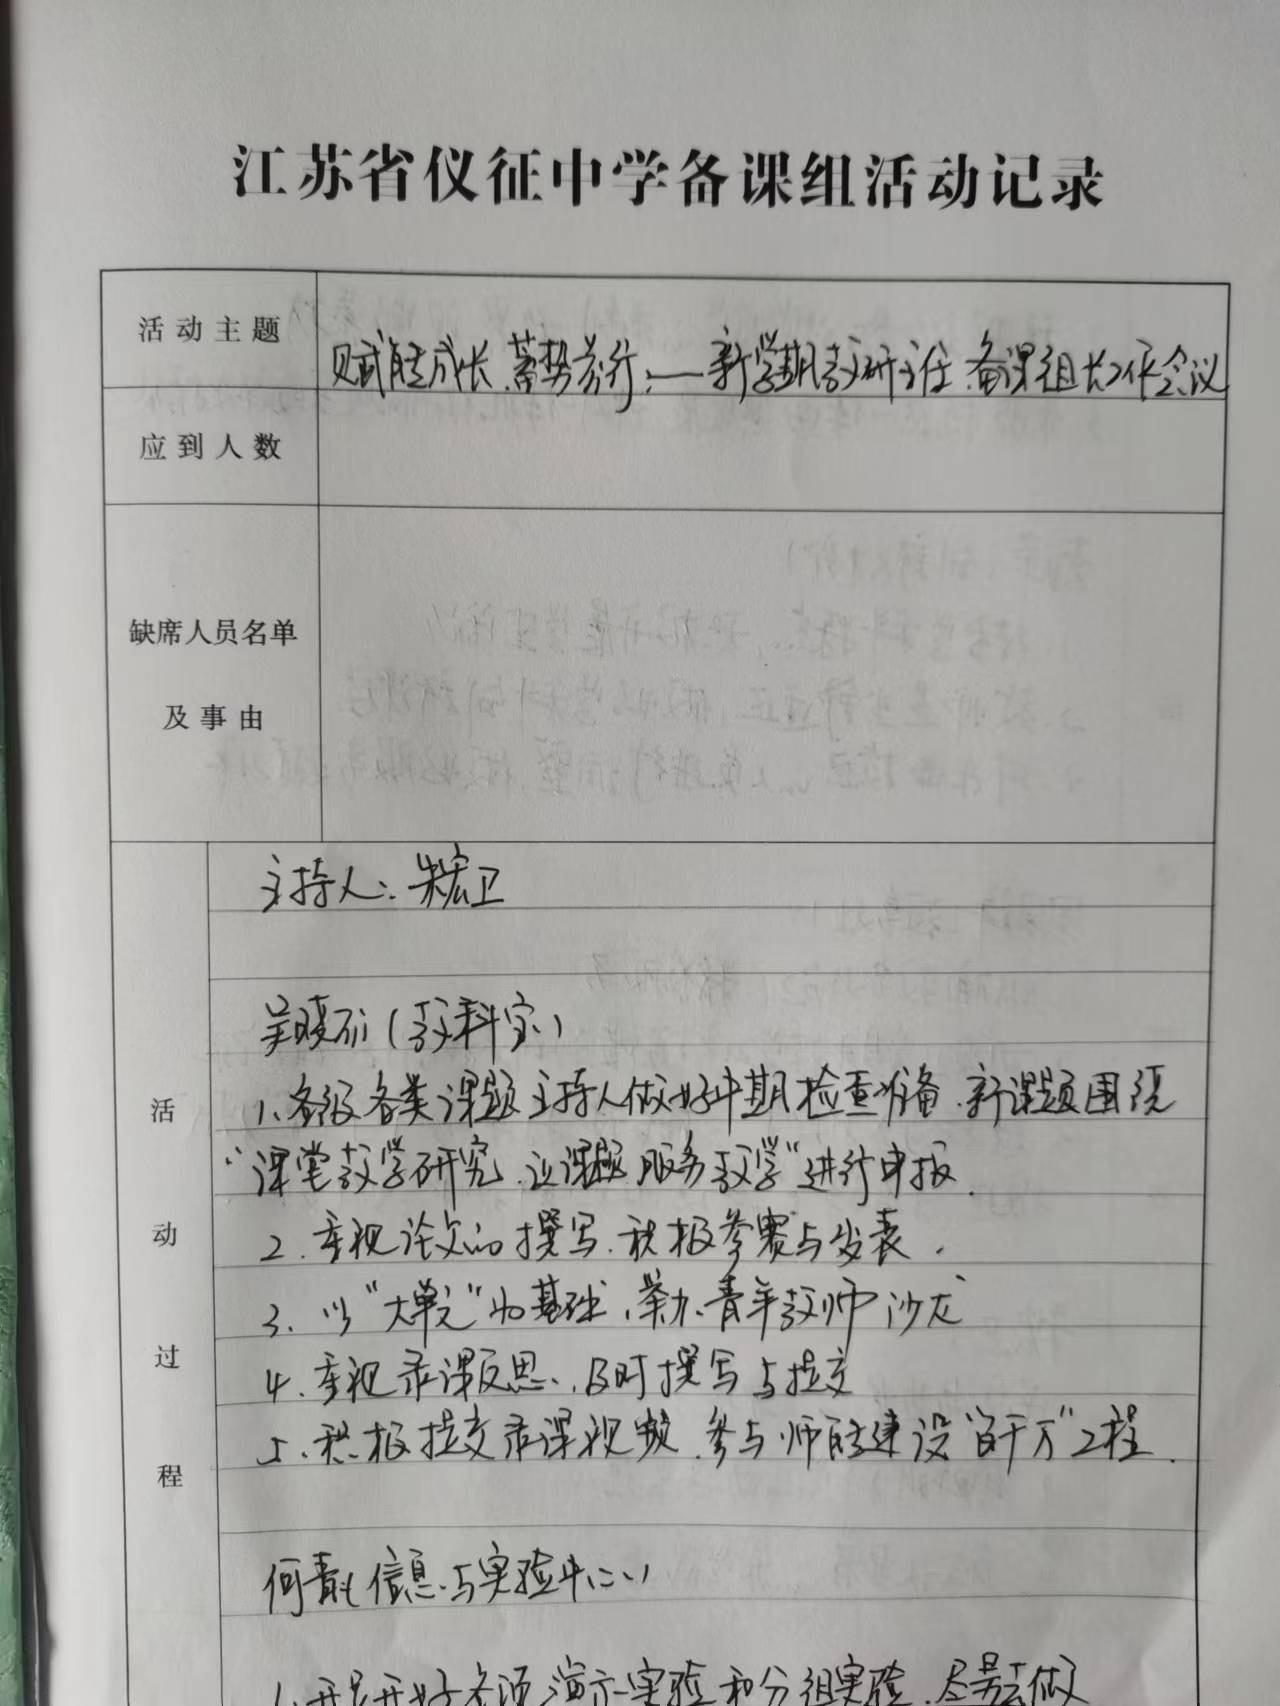 江苏省仪征中学备课组活动记录
活动主题
赋能成长 蓄势前行——新学期教研主任、备课组长工作会议
应到人数
缺席人员名单
及事由
活动过程
主持人：朱宏卫
吴晓（教科室）
1、各级各类课题主持人做好中期检查准备、新课题围绕
“课堂教学研究、让课题服务教学”进行申报.
2、重视论文的撰写、积极参赛与发表.
3、以“大单元”为基础、举办青年教师沙龙
4、重视录课反思、及时撰写与提交
5、积极提交录课视频、参与师能建设“百千万”工程.
何青（信息与实验中心）
1、开足开好各项演示实验和分组实验、尽量去做